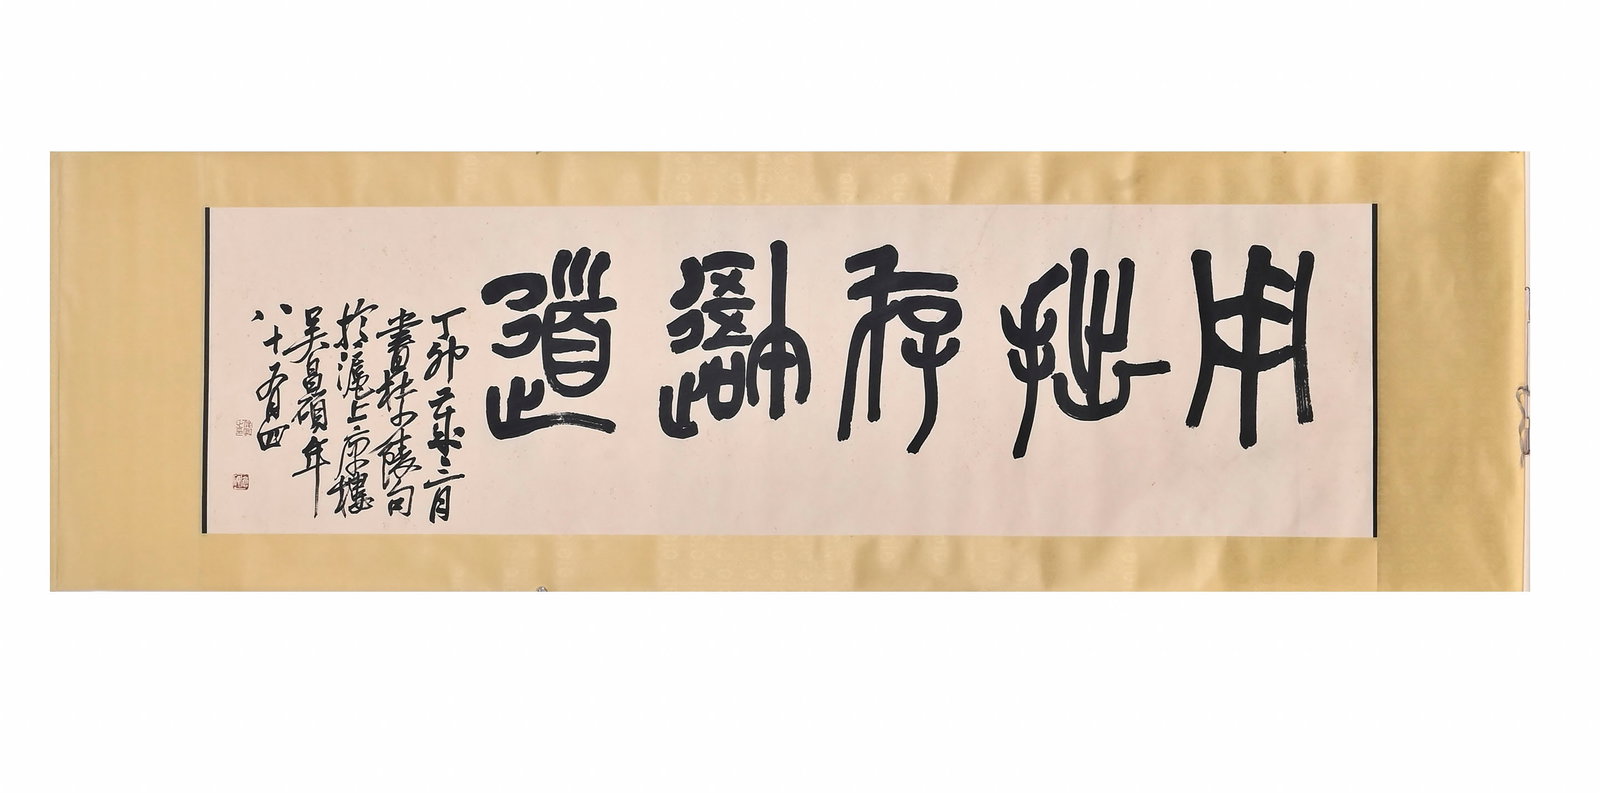 用拙存吾道
丁卯歲三月
書杜少陵句
於滬上樓
吳昌碩年
八十有四